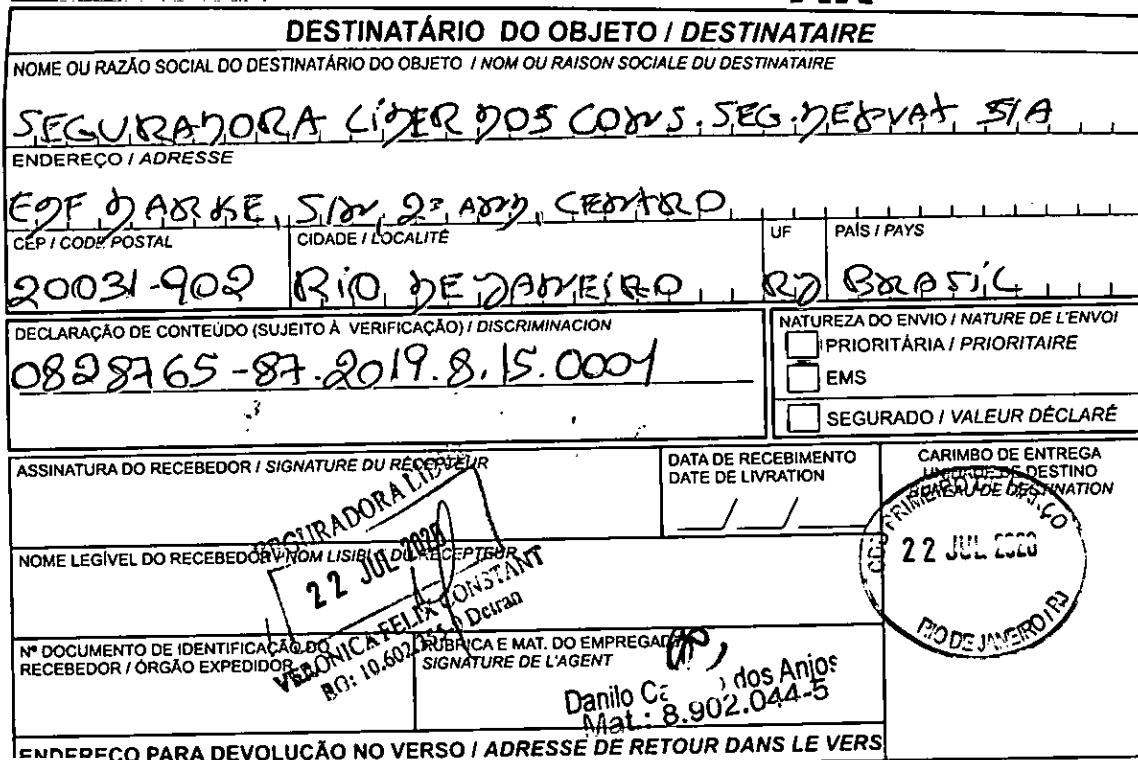 DESTINATÁRIO DO OBJETO / DESTINATAIRE
NOME OU RAZÃO SOCIAL DO DESTINATÁRIO DO OBJETO / NOM OU RAISON SOCIALE DU DESTINATAIRE
SEGURADORA LÍDER DOS CONS. SEG. DEPVAT S/A
ENDEREÇO / ADRESSE
EDF DARKE, S/N, 2º AND, CENTRO
CEP / CODE POSTAL CIDADE / LOCALITÉ UF PAÍS / PAYS
20031-902 RIO DE JANEIRO RJ BRASIL
DECLARAÇÃO DE CONTEÚDO (SUJEITO À VERIFICAÇÃO) / DISCRIMINACION
0828765-87.2019.8.15.0001
NATUREZA DO ENVIO / NATURE DE L'ENVOI
PRIORITÁRIA / PRIORITAIRE
EMS
SEGURADO / VALEUR DÉCLARÉ
ASSINATURA DO RECEBEDOR / SIGNATURE DU RÉCEPTEUR
DATA DE RECEBIMENTO
DATE DE LIVRATION
___/___/___
CARIMBO DE ENTREGA
UNIDADE DE DESTINO
BUREAU DE DESTINATION
PRIMEIRO DE MARÇO
22 JUL 2020
RIO DE JANEIRO / RJ
SEGURADORA LÍDER
22 JUL 2020
VERONICA FELIX CONSTANT
Detran
NOME LEGÍVEL DO RECEBEDOR / NOM LISIBLE DU RÉCEPTEUR
Nº DOCUMENTO DE IDENTIFICAÇÃO DO
RECEBEDOR / ÓRGÃO EXPEDIDOR
RUBRICA E MAT. DO EMPREGADO
SIGNATURE DE L'AGENT
Danilo dos Anjos
Mat.: 8.902.044-5
ENDEREÇO PARA DEVOLUÇÃO NO VERSO / ADRESSE DE RETOUR DANS LE VERS